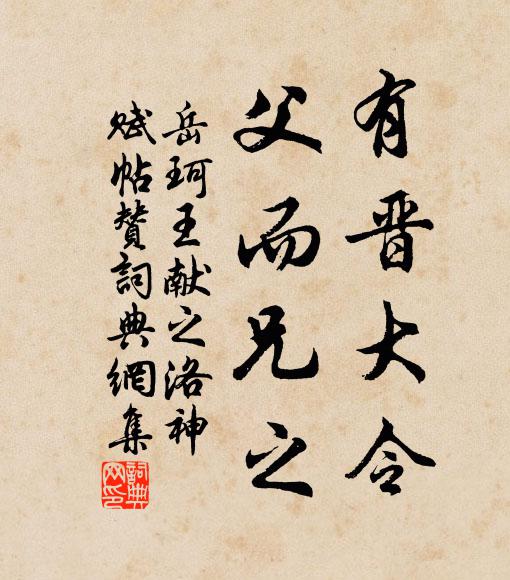 有晋大令
父而兄之
岳珂王献之洛神
赋帖赞詞典網集
詞典网印